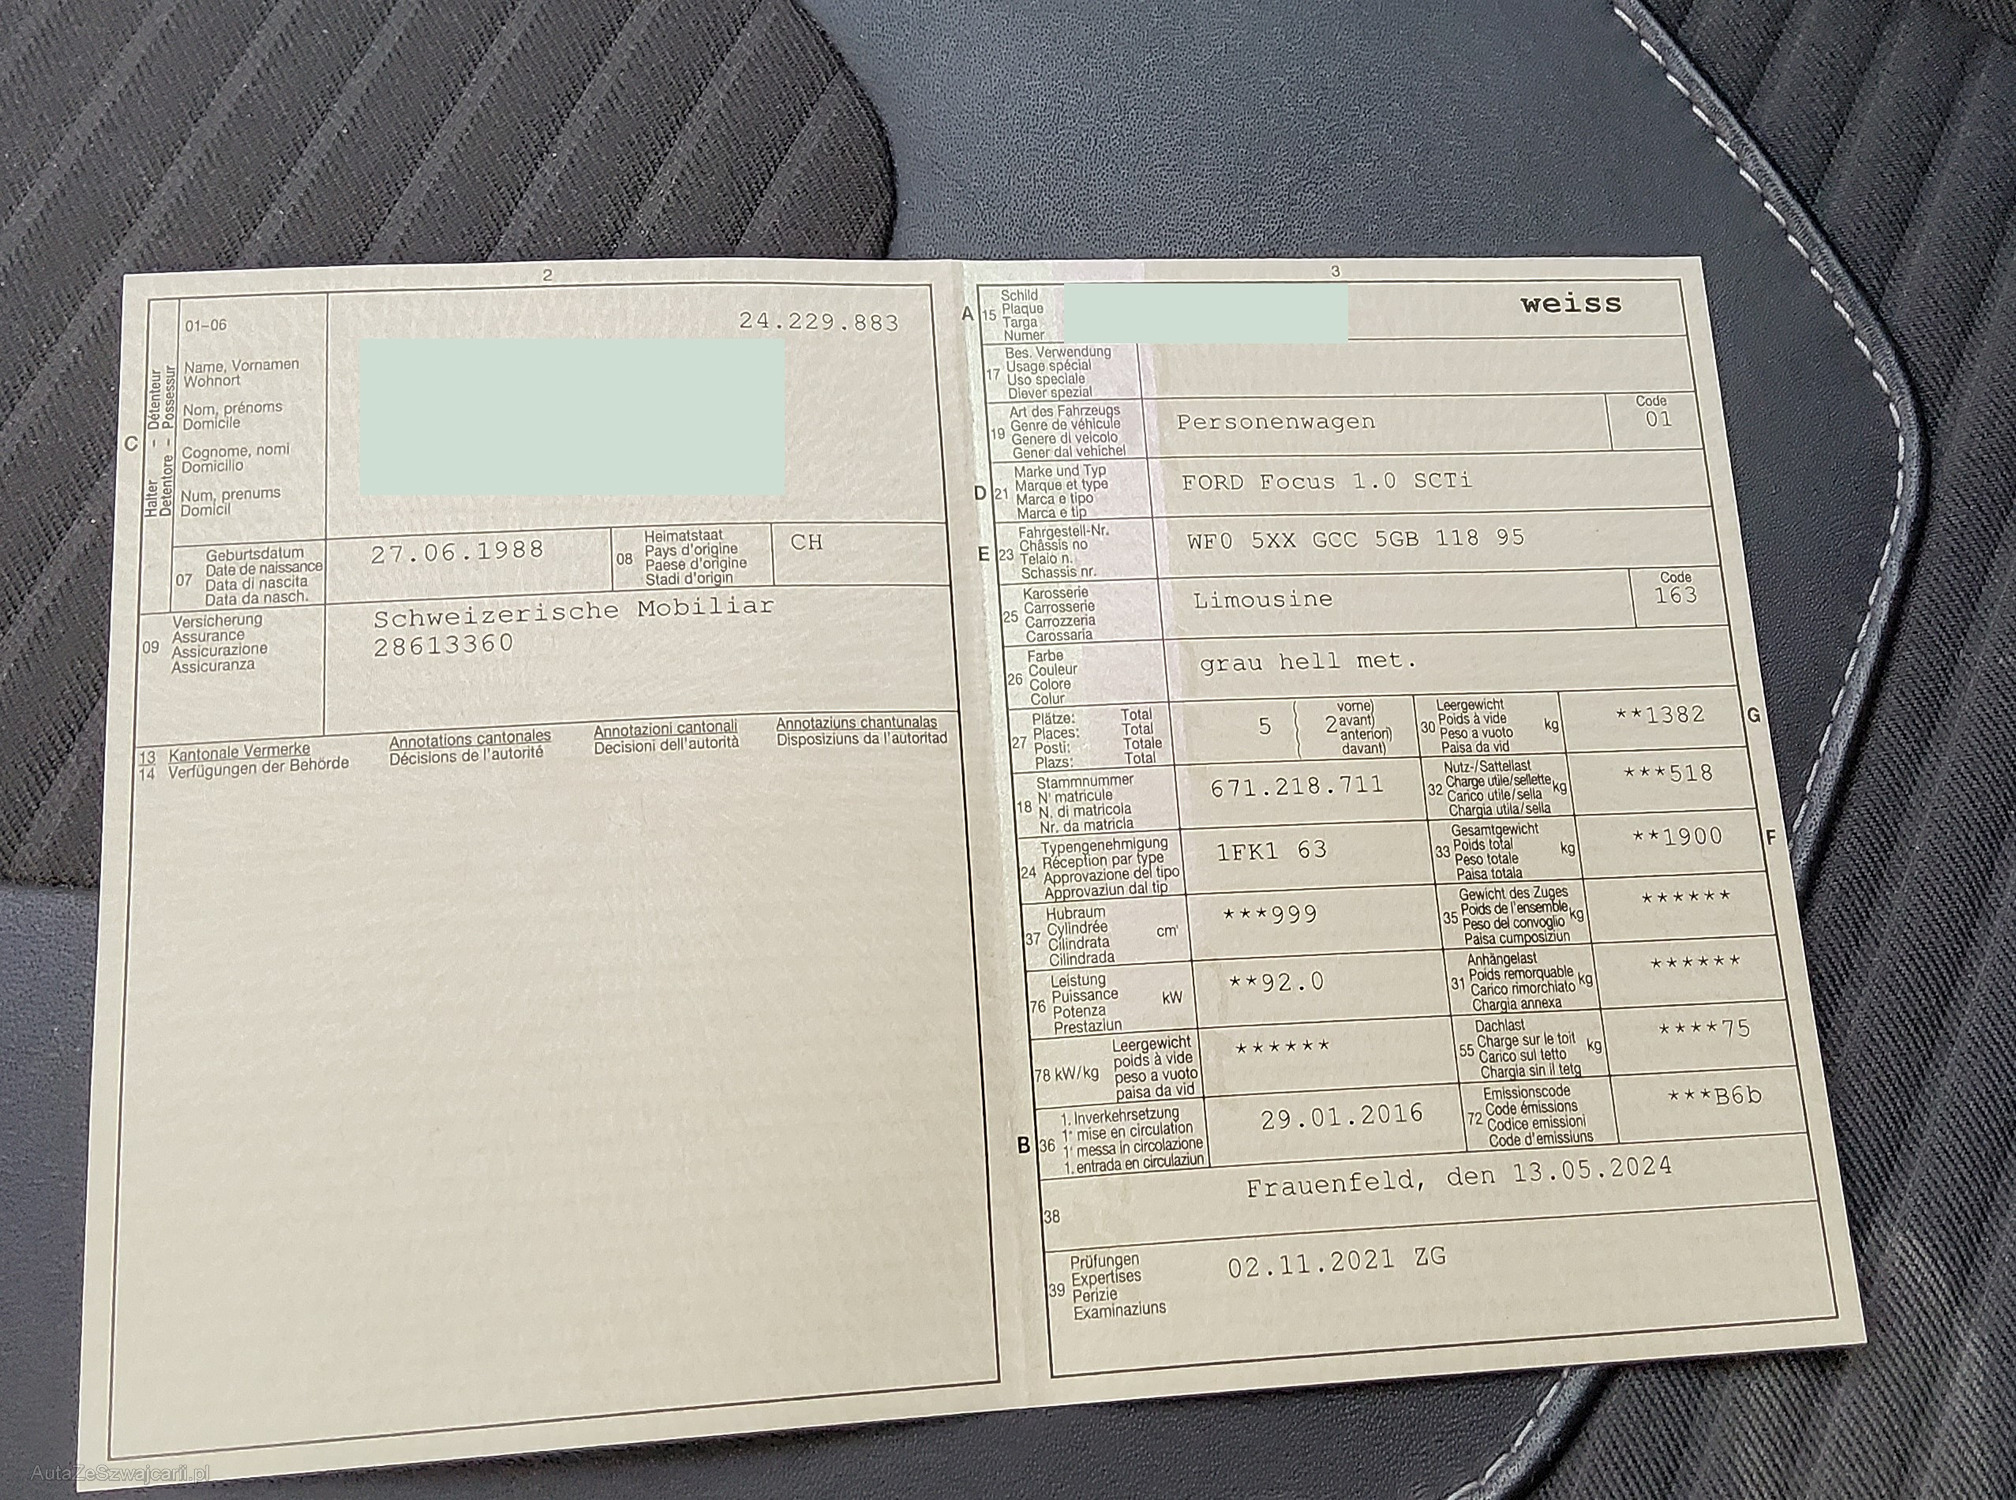 2
01-06
24.229.883
Halter - Détenteur
Detentore - Possessur
C
Name, Vornamen
Wohnort
Nom, prénoms
Domicile
Cognome, nomi
Domicilio
Num, prenums
Domicil
07
Geburtsdatum
Date de naissance
Data di nascita
Data da nasch.
27.06.1988
08
Heimatstaat
Pays d'origine
Paese d'origine
Stadi d'origin
CH
09
Versicherung
Assurance
Assicurazione
Assicuranza
Schweizerische Mobiliar
28613360
13 Kantonale Vermerke
14 Verfügungen der Behörde
Annotations cantonales
Décisions de l'autorité
Annotazioni cantonali
Decisioni dell'autorità
Annotaziuns chantunalas
Disposiziuns da l'autoritad
3
A
15
Schild
Plaque
Targa
Numer
weiss
17
Bes. Verwendung
Usage spécial
Uso speciale
Diever spezial
19
Art des Fahrzeugs
Genre de véhicule
Genere di veicolo
Gener dal vehichel
Personenwagen
Code
01
D
21
Marke und Typ
Marque et type
Marca e tipo
Marca e tip
FORD Focus 1.0 SCTi
E
23
Fahrgestell-Nr.
Châssis no
Telaio n.
Schassis nr.
WF0 5XX GCC 5GB 118 95
25
Karosserie
Carrosserie
Carrozzeria
Carossaria
Limousine
Code
163
26
Farbe
Couleur
Colore
Colur
grau hell met.
27
Plätze: Total
Places: Total
Posti: Totale
Plazs: Total
5
2
vorne)
avant)
anteriori)
davant)
30
Leergewicht
Poids à vide
Peso a vuoto
Paisa da vid
kg
**1382
G
18
Stammnummer
N° matricule
N. di matricola
Nr. da matricla
671.218.711
32
Nutz-/Sattellast
Charge utile/sellette
Carico utile/sella
Chargia utila/sella
kg
***518
24
Typengenehmigung
Réception par type
Approvazione del tipo
Approvaziun dal tip
1FK1 63
33
Gesamtgewicht
Poids total
Peso totale
Paisa totala
kg
**1900
F
37
Hubraum
Cylindrée
Cilindrata
Cilindrada
cm³
***999
35
Gewicht des Zuges
Poids de l'ensemble
Peso del convoglio
Paisa cumposiziun
kg
******
76
Leistung
Puissance
Potenza
Prestaziun
kW
**92.0
31
Anhängelast
Poids remorquable
Carico rimorchiato
Chargia annexa
kg
******
78 kW/kg
Leergewicht
poids à vide
peso a vuoto
paisa da vid
******
55
Dachlast
Charge sur le toit
Carico sul tetto
Chargia sin il tetg
kg
****75
B
36
1. Inverkehrsetzung
1° mise en circulation
1° messa in circolazione
1. entrada en circulaziun
29.01.2016
72
Emissionscode
Code émissions
Codice emissioni
Code d'emissiuns
***B6b
38
Frauenfeld, den 13.05.2024
39
Prüfungen
Expertises
Perizie
Examinaziuns
02.11.2021 ZG
AutaZeSzwajcarii.pl